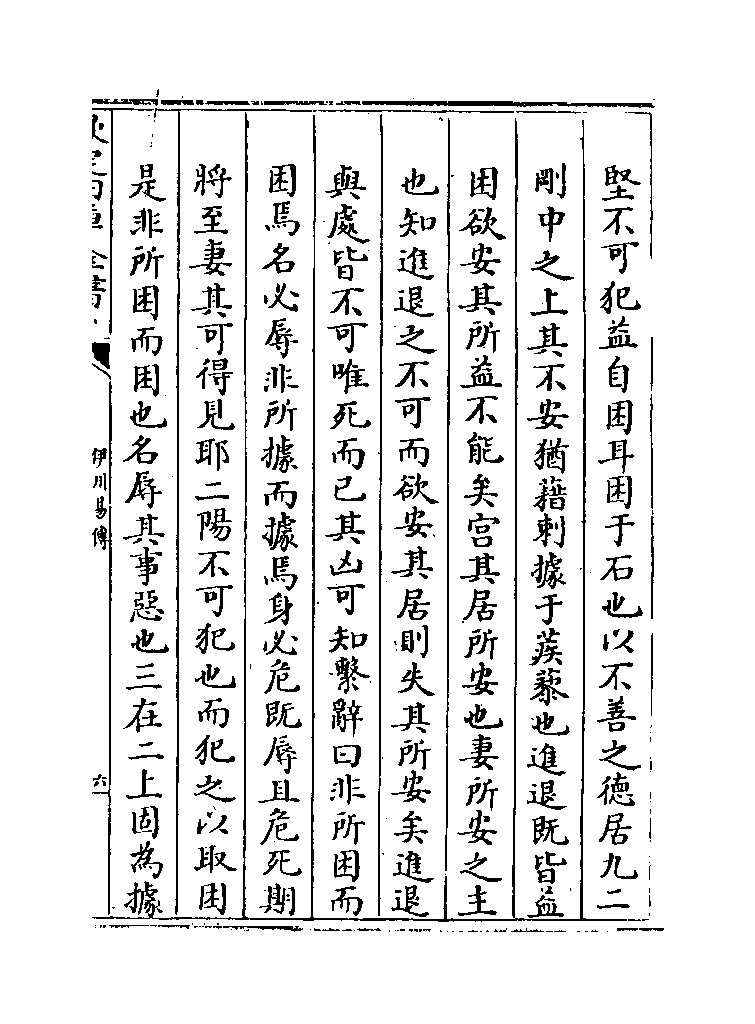 堅不可犯益自困耳困于石也以不善之德居九二
剛中之上其不安猶藉刺據于蒺藜也進退既皆益
困欲安其所益不能矣宫其居所安也妻所安之主
也知進退之不可而欲安其居則失其所安矣進退
與處皆不可唯死而已其凶可知繫辭曰非所困而
困焉名必辱非所據而據焉身必危既辱且危死期
將至妻其可得見耶二陽不可犯也而犯之以取困
是非所困而困也名辱其事惡也三在二上固為據
欽定四庫全書
伊川易傳
六